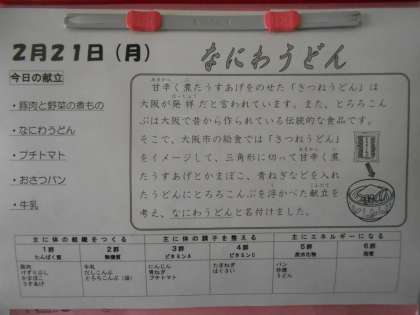 2月21日(月)
なにわうどん
今日の献立
・豚肉と野菜の煮もの
・なにわうどん
・プチトマト
・おさつパン
・牛乳
甘辛く煮たうすあげをのせた「きつねうどん」は
大阪が発祥だと言われています。また、とろろこん
ぶは大阪で昔から作られている伝統的な食品です。
そこで、大阪市の給食では「きつねうどん」
をイメージして、三角形に切って甘辛く煮
たうすあげとかまぼこ、青ねぎなどを入れ
たうどんにとろろこんぶを浮かべた献立を
考え、なにわうどんと名付けました。
主に体の組織をつくる 主に体の調子を整える 主にエネルギーになる
1群 2群 3群 4群 5群 6群
たんぱく質 無機質 ビタミンA ビタミンC 炭水化物 脂質
豚肉 牛乳 にんじん たまねぎ パン
けずりぶし だしこんぶ 青ねぎ はくさい 砂糖
かまぼこ とろろこんぶ(袋) プチトマト うどん
うすあげ